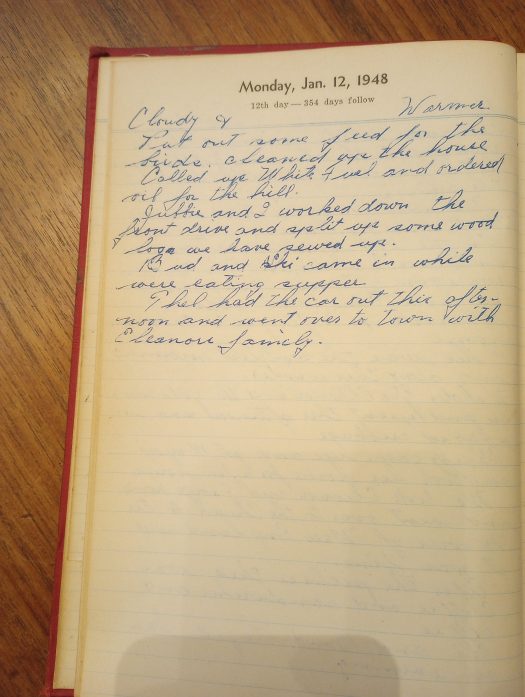 Monday, Jan. 12, 1948
12th day — 354 days follow
Cloudy & Warmer
Put out some feed for the
birds. cleaned up the house
Called up White Fuel and ordered
oil for the hill.
and I worked down the
front drive and split up some wood
logs we have sewed up.
Bud and came in while
were eating supper
Thel had the car out this after-
noon and went over to town with
Eleanors family.